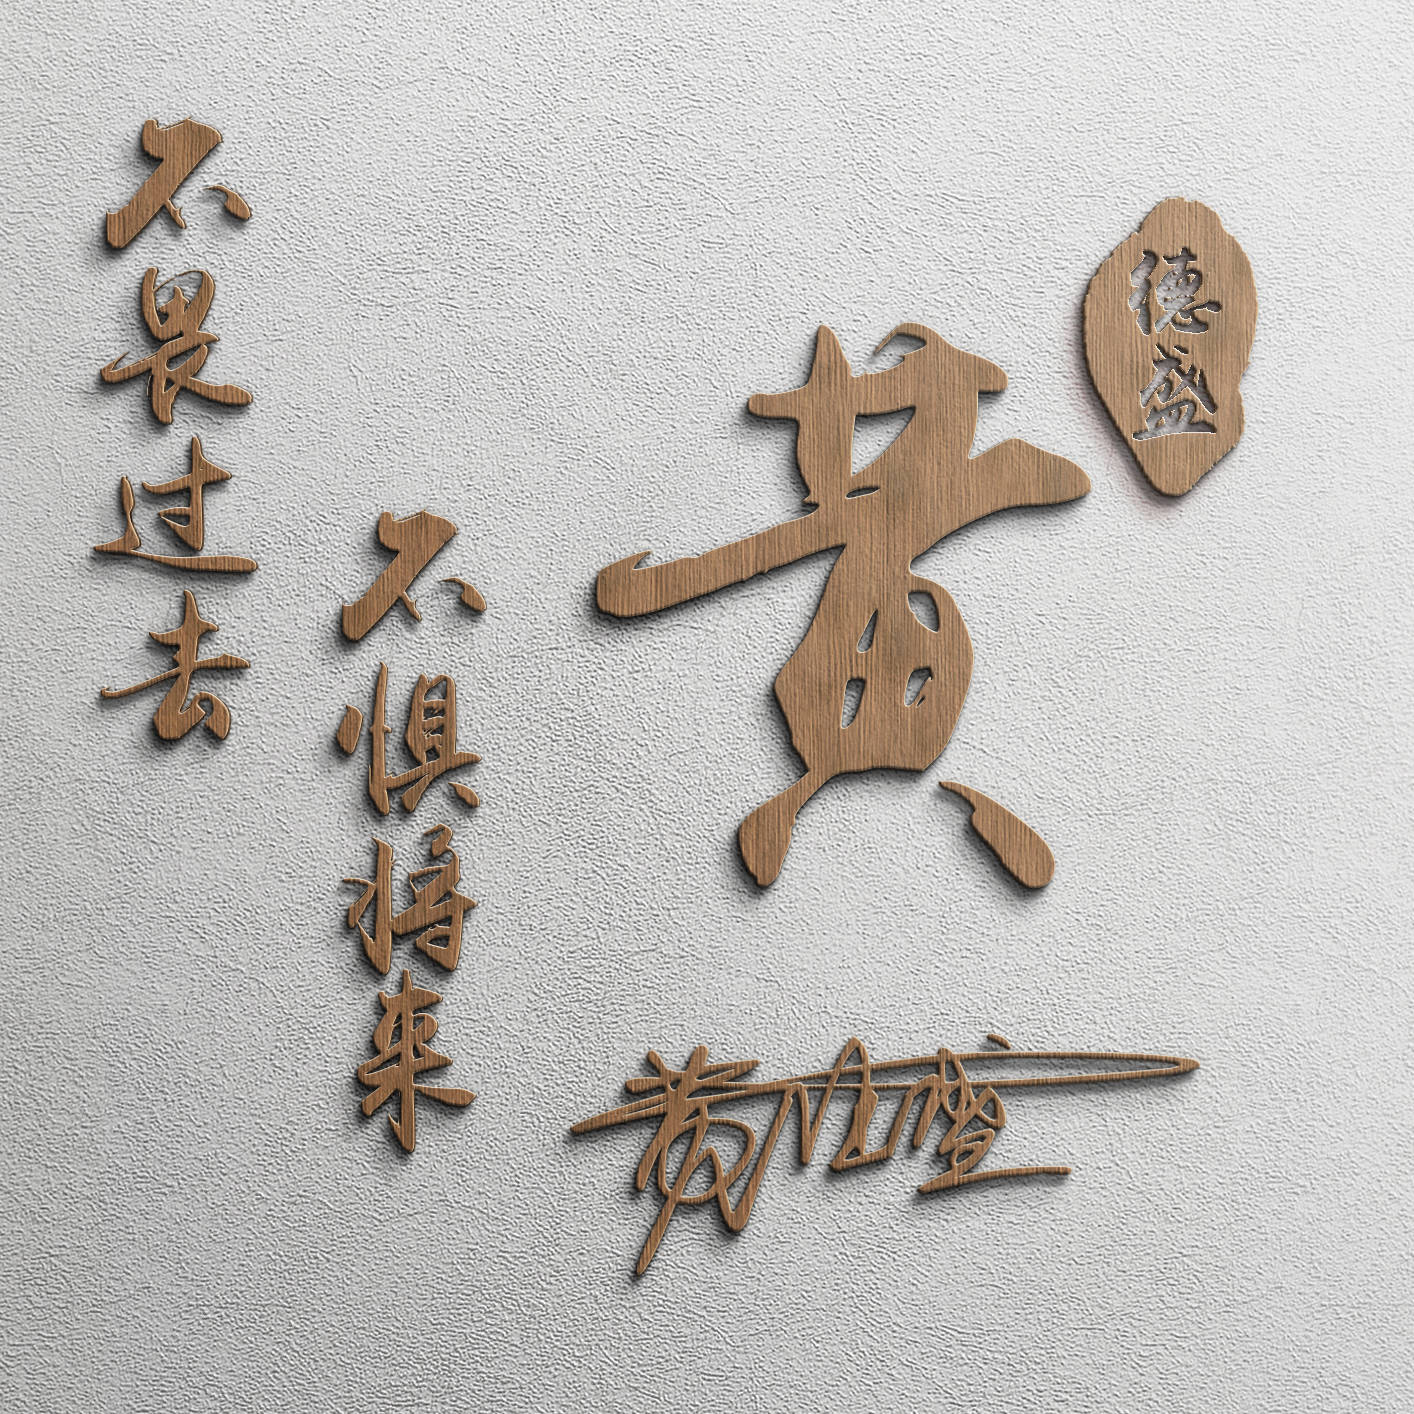 德盛
黄
不惧将来
不畏过去